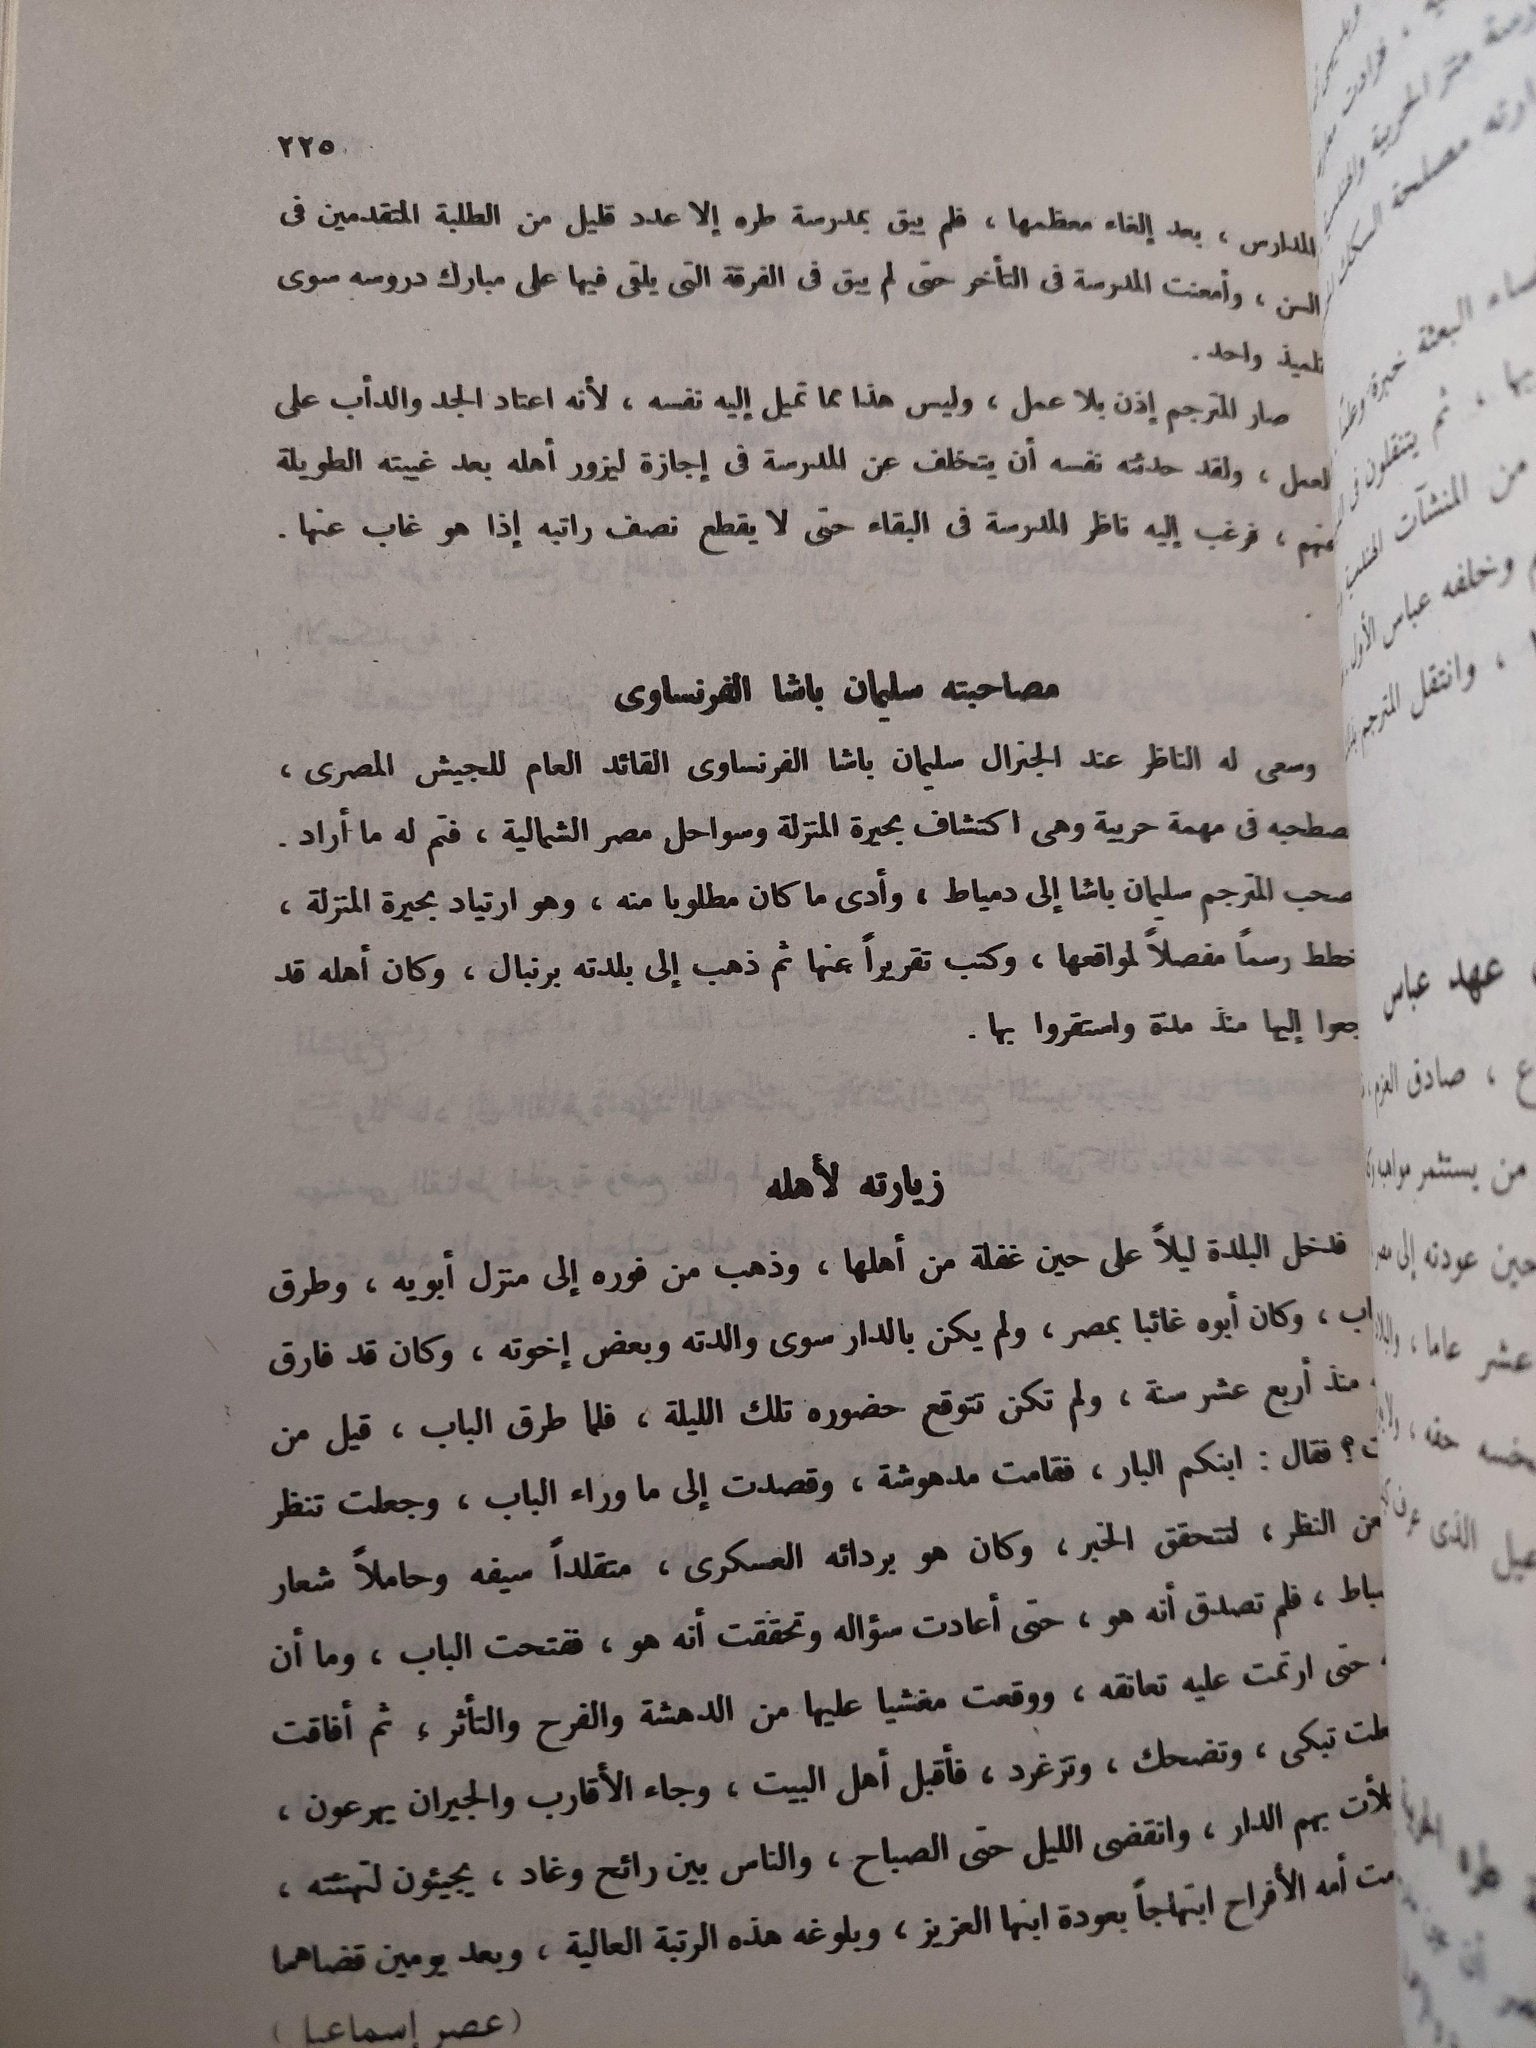 ٢٢٥
المدارس ، بعد إلغاء معظمها ، فلم يبق بمدرسة طره إلا عدد قليل من الطلبة المتقدمين فى
السن ، وأمعنت المدرسة فى التأخر حتى لم يبق فى الفرقة التى يلقى فيها على مبارك دروسه سوى
تلميذ واحد .
صار المترجم إذن بلا عمل ، وليس هذا مما تميل إليه نفسه ، لأنه اعتاد الجد والدأب على
لعمل ، ولقد حدثته نفسه أن يتخلف عن المدرسة فى إجازة ليزور أهله بعد غيبته الطويلة
عنهم ، فرغب إليه ناظر المدرسة فى البقاء حتى لا يقطع نصف راتبه إذا هو غاب عنها .
مصاحبته سليمان باشا الفرنساوى
وسعى له الناظر عند الجنرال سليمان باشا الفرنساوى القائد العام للجيش المصرى ،
صطحبه فى مهمة حربية وهى اكتشاف بحيرة المنزلة وسواحل مصر الشمالية ، فتم له ما أراد .
صحب المترجم سليمان باشا إلى دمياط ، وأدى ما كان مطلوبا منه ، وهو ارتياد بحيرة المنزلة ،
خطط رسماً مفصلاً لمواقعها ، وكتب تقريراً عنها ثم ذهب إلى بلدته برنبال ، وكان أهله قد
جعوا إليها منذ مدة واستقروا بها .
زيارته لأهله
فدخل البلدة ليلاً على حين غفلة من أهلها ، وذهب من فوره إلى منزل أبويه ، وطرق
اب ، وكان أبوه غائبا بمصر ، ولم يكن بالدار سوى والدته وبعض إخوته ، وكان قد فارق
منذ أربع عشر سنة ، ولم تكن تتوقع حضوره تلك الليلة ، فلما طرق الباب ، قيل من
ت؟ فقال : ابنكم البار ، فقامت مدهوشة ، وقصدت إلى ما وراء الباب ، وجعلت تنظر
عن النظر ، لتتحقق الخبر ، وكان هو بردائه العسكرى ، متقلداً سيفه وحاملاً شعار
ضباط ، فلم تصدق أنه هو ، حتى أعادت سؤاله وتحققت أنه هو ، ففتحت الباب ، وما أن
، حتى ارتمت عليه تعانقه ، ووقعت مغشيا عليها من الدهشة والفرح والتأثر ، ثم أفاقت
علت تبكى ، وتضحك ، وتزغرد ، فأقبل أهل البيت ، وجاء الأقارب والجيران يهرعون ،
لأت بهم الدار ، وانقضى الليل حتى الصباح ، والناس بين رائح وغاد ، يجيئون لتهنئته ،
مت أمه الأفراح ابتهاجاً بعودة ابنها العزيز ، وبلوغه هذه الرتبة العالية ، وبعد يومين قضاهما
( عصر إسماعيل )
مصلحة السكك
البعثة خبرة
بها ، ثم يتنقلون فى
من المنشآت
وخلفه عباس الأول
، وانتقل المترجم
عهد عباس
ع ، صادق العزم
من يستثمر مواهبه
حين عودته إلى مصر
عشر عاما ،
يبخسه حقه ،
الذى عرف